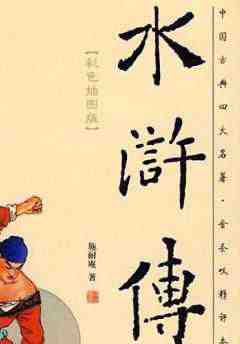 中国古典四大名著·金圣叹精评本
水浒傳
【彩色插图版】
施耐庵 著